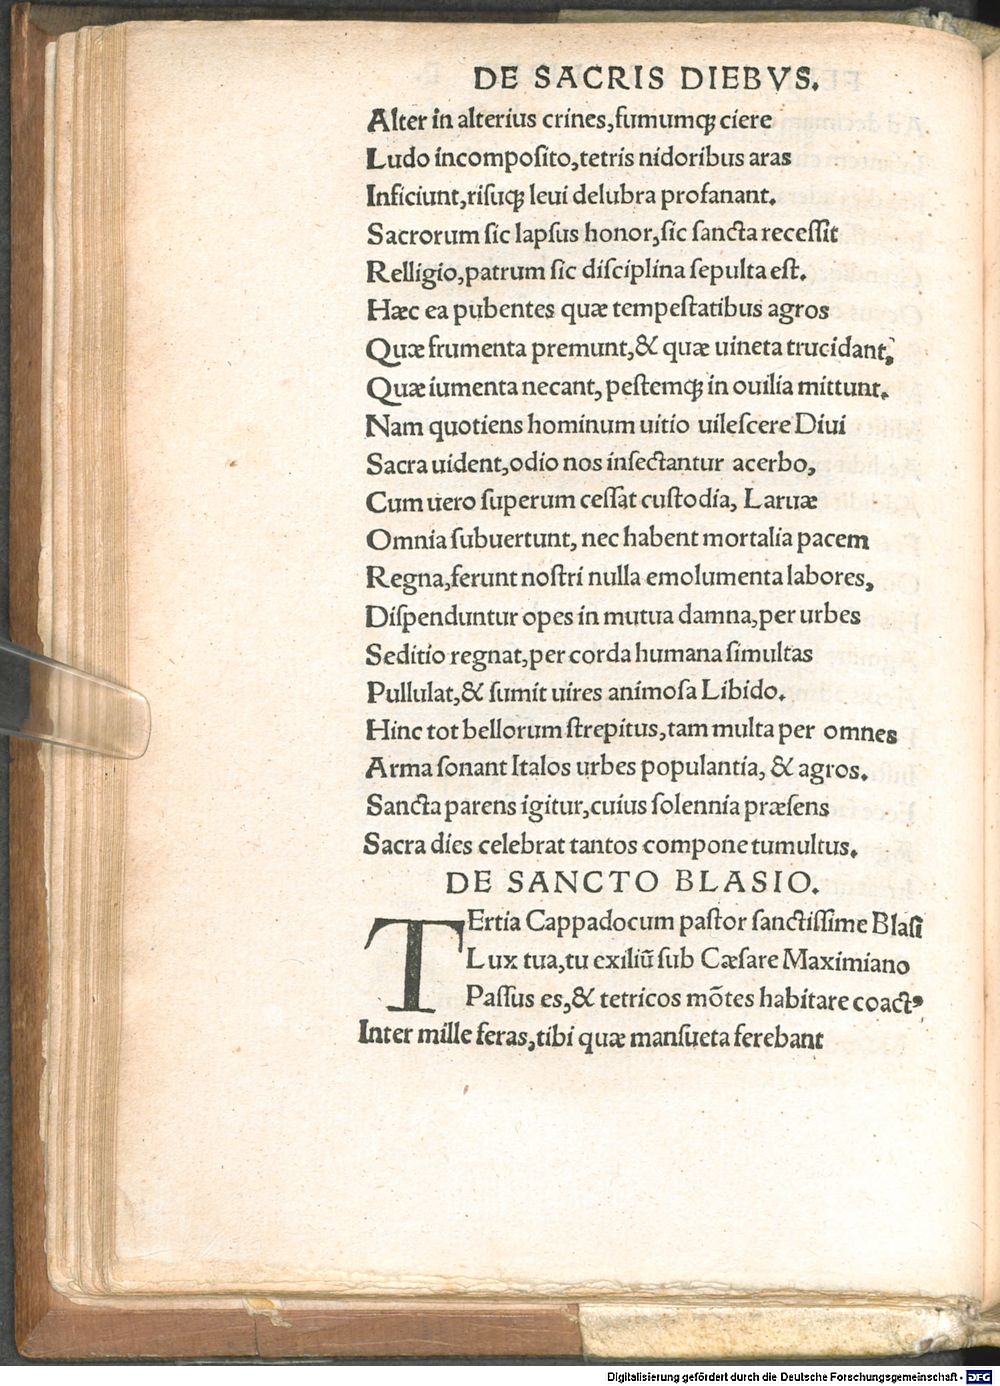 DE SACRIS DIEBVS.
Alter in alterius crines,fumumqꝫ ciere
Ludo incomposito,tetris nidoribus aras
Inficiunt,risuqꝫ leui delubra profanant.
Sacrorum sic lapsus honor,sic sancta recessit
Relligio,patrum sic disciplina sepulta est.
Hæc ea pubentes quæ tempestatibus agros
Quæ frumenta premunt,& quæ uineta trucidant,
Quæ iumenta necant, pestemqꝫ in ouilia mittunt.
Nam quotiens hominum uitio uilescere Diui
Sacra uident,odio nos insectantur acerbo,
Cum uero superum cessat custodia, Laruæ
Omnia subuertunt, nec habent mortalia pacem
Regna,ferunt nostri nulla emolumenta labores,
Dispenduntur opes in mutua damna,per urbes
Seditio regnat,per corda humana simultas
Pullulat,& sumit uires animosa Libido.
Hinc tot bellorum strepitus,tam multa per omnes
Arma sonant Italos urbes populantia, & agros.
Sancta parens igitur,cuius solennia præsens
Sacra dies celebrat tantos compone tumultus.
DE SANCTO BLASIO.
TErtia Cappadocum pastor sanctissime Blasi
Lux tua,tu exiliū sub Cæsare Maximiano
Passus es,& tetricos mōtes habitare coactꝰ
Inter mille feras,tibi quæ mansueta ferebant
Digitalisierung gefördert durch die Deutsche Forschungsgemeinschaft - DFG